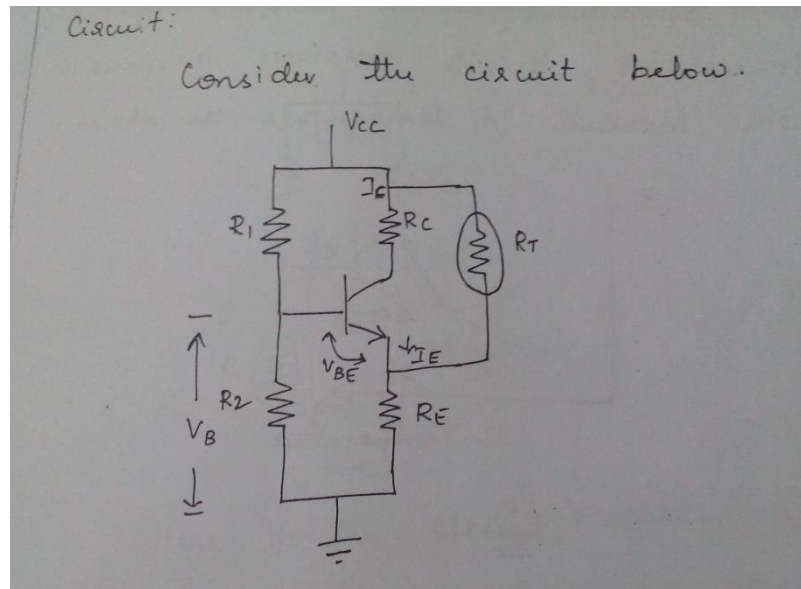 Circuit:
Consider the circuit below.
Vcc
Ic
R1
Rc
RT
VBE
IE
R2
RE
VB